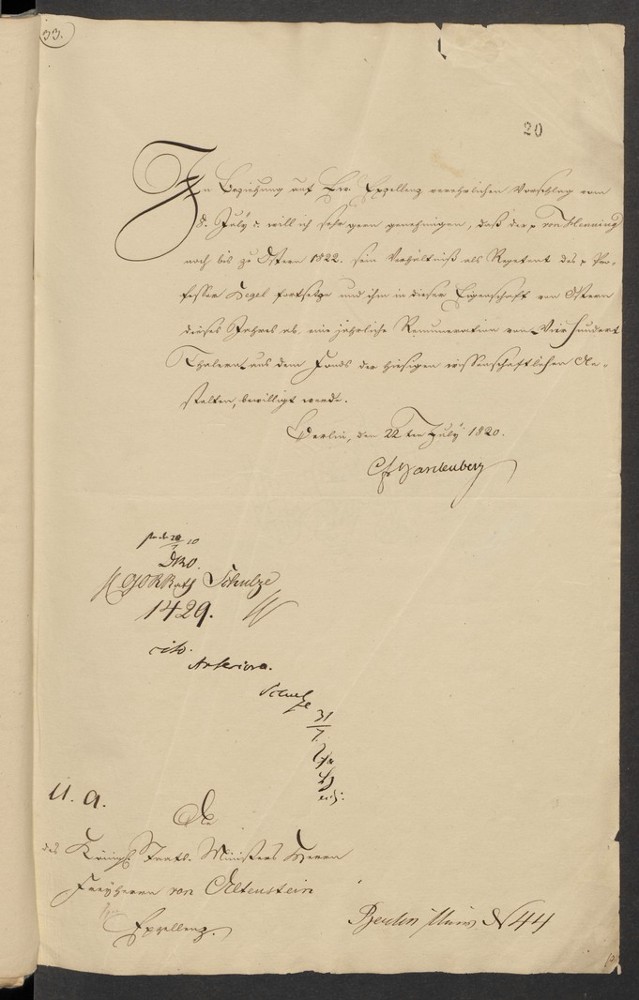 33.
20
In Beziehung auf Ew. Excellenz verehrlichen Vorschlag vom
8. July c. will ich sehr gern genehmigen, daß der p von Henning
noch bis zu Ostern 1822. sein Verhältniß als Repetent des p Pro-
fessor Hegel fortsetze und ihm in dieser Eigenschaft von Ostern
dieses Jahres ab, eine jährliche Remuneration von Vier hundert
Thalern aus dem Fonds der hiesigen wissenschaftlichen An-
stalten, bewilligt werde.
Berlin, den 22ten July 1820.
CfvHardenberg
H GORRath Schulze
1429.
cito.
Anteriora.
Schulze
31
7
U. a.
An
des Königl. Staats-Ministers Herrn
Freyherrn von Altenstein
Excellenz.
Berlin Univ N 44